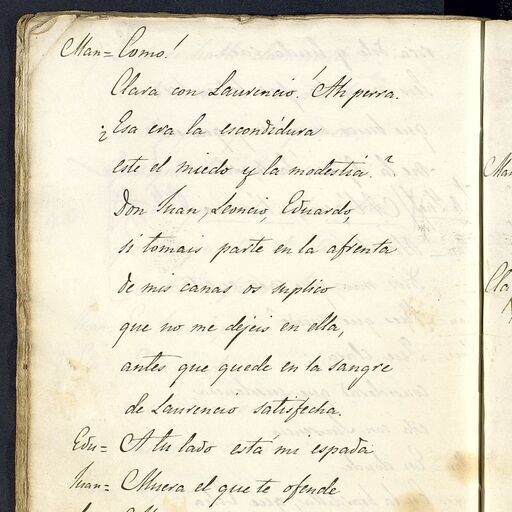 Man= Como!
Clara con Laurencio! Ah perra.
¿Esa era la escondidura
este el miedo y la modestia?
Don Juan, Leoncio, Eduardo,
si tomais parte en la afrenta
de mis canas os suplico
que no me dejeis en ella,
antes que quede en la sangre
de Laurencio satisfecha.
Edu= A tu lado está mi espada
Juan= Muera el que te ofende